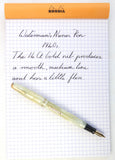 RHODIA
Waterman's Nurses Pen
1960s.
The 14ct Gold nib produces
a smooth, medium line
and has a little flex